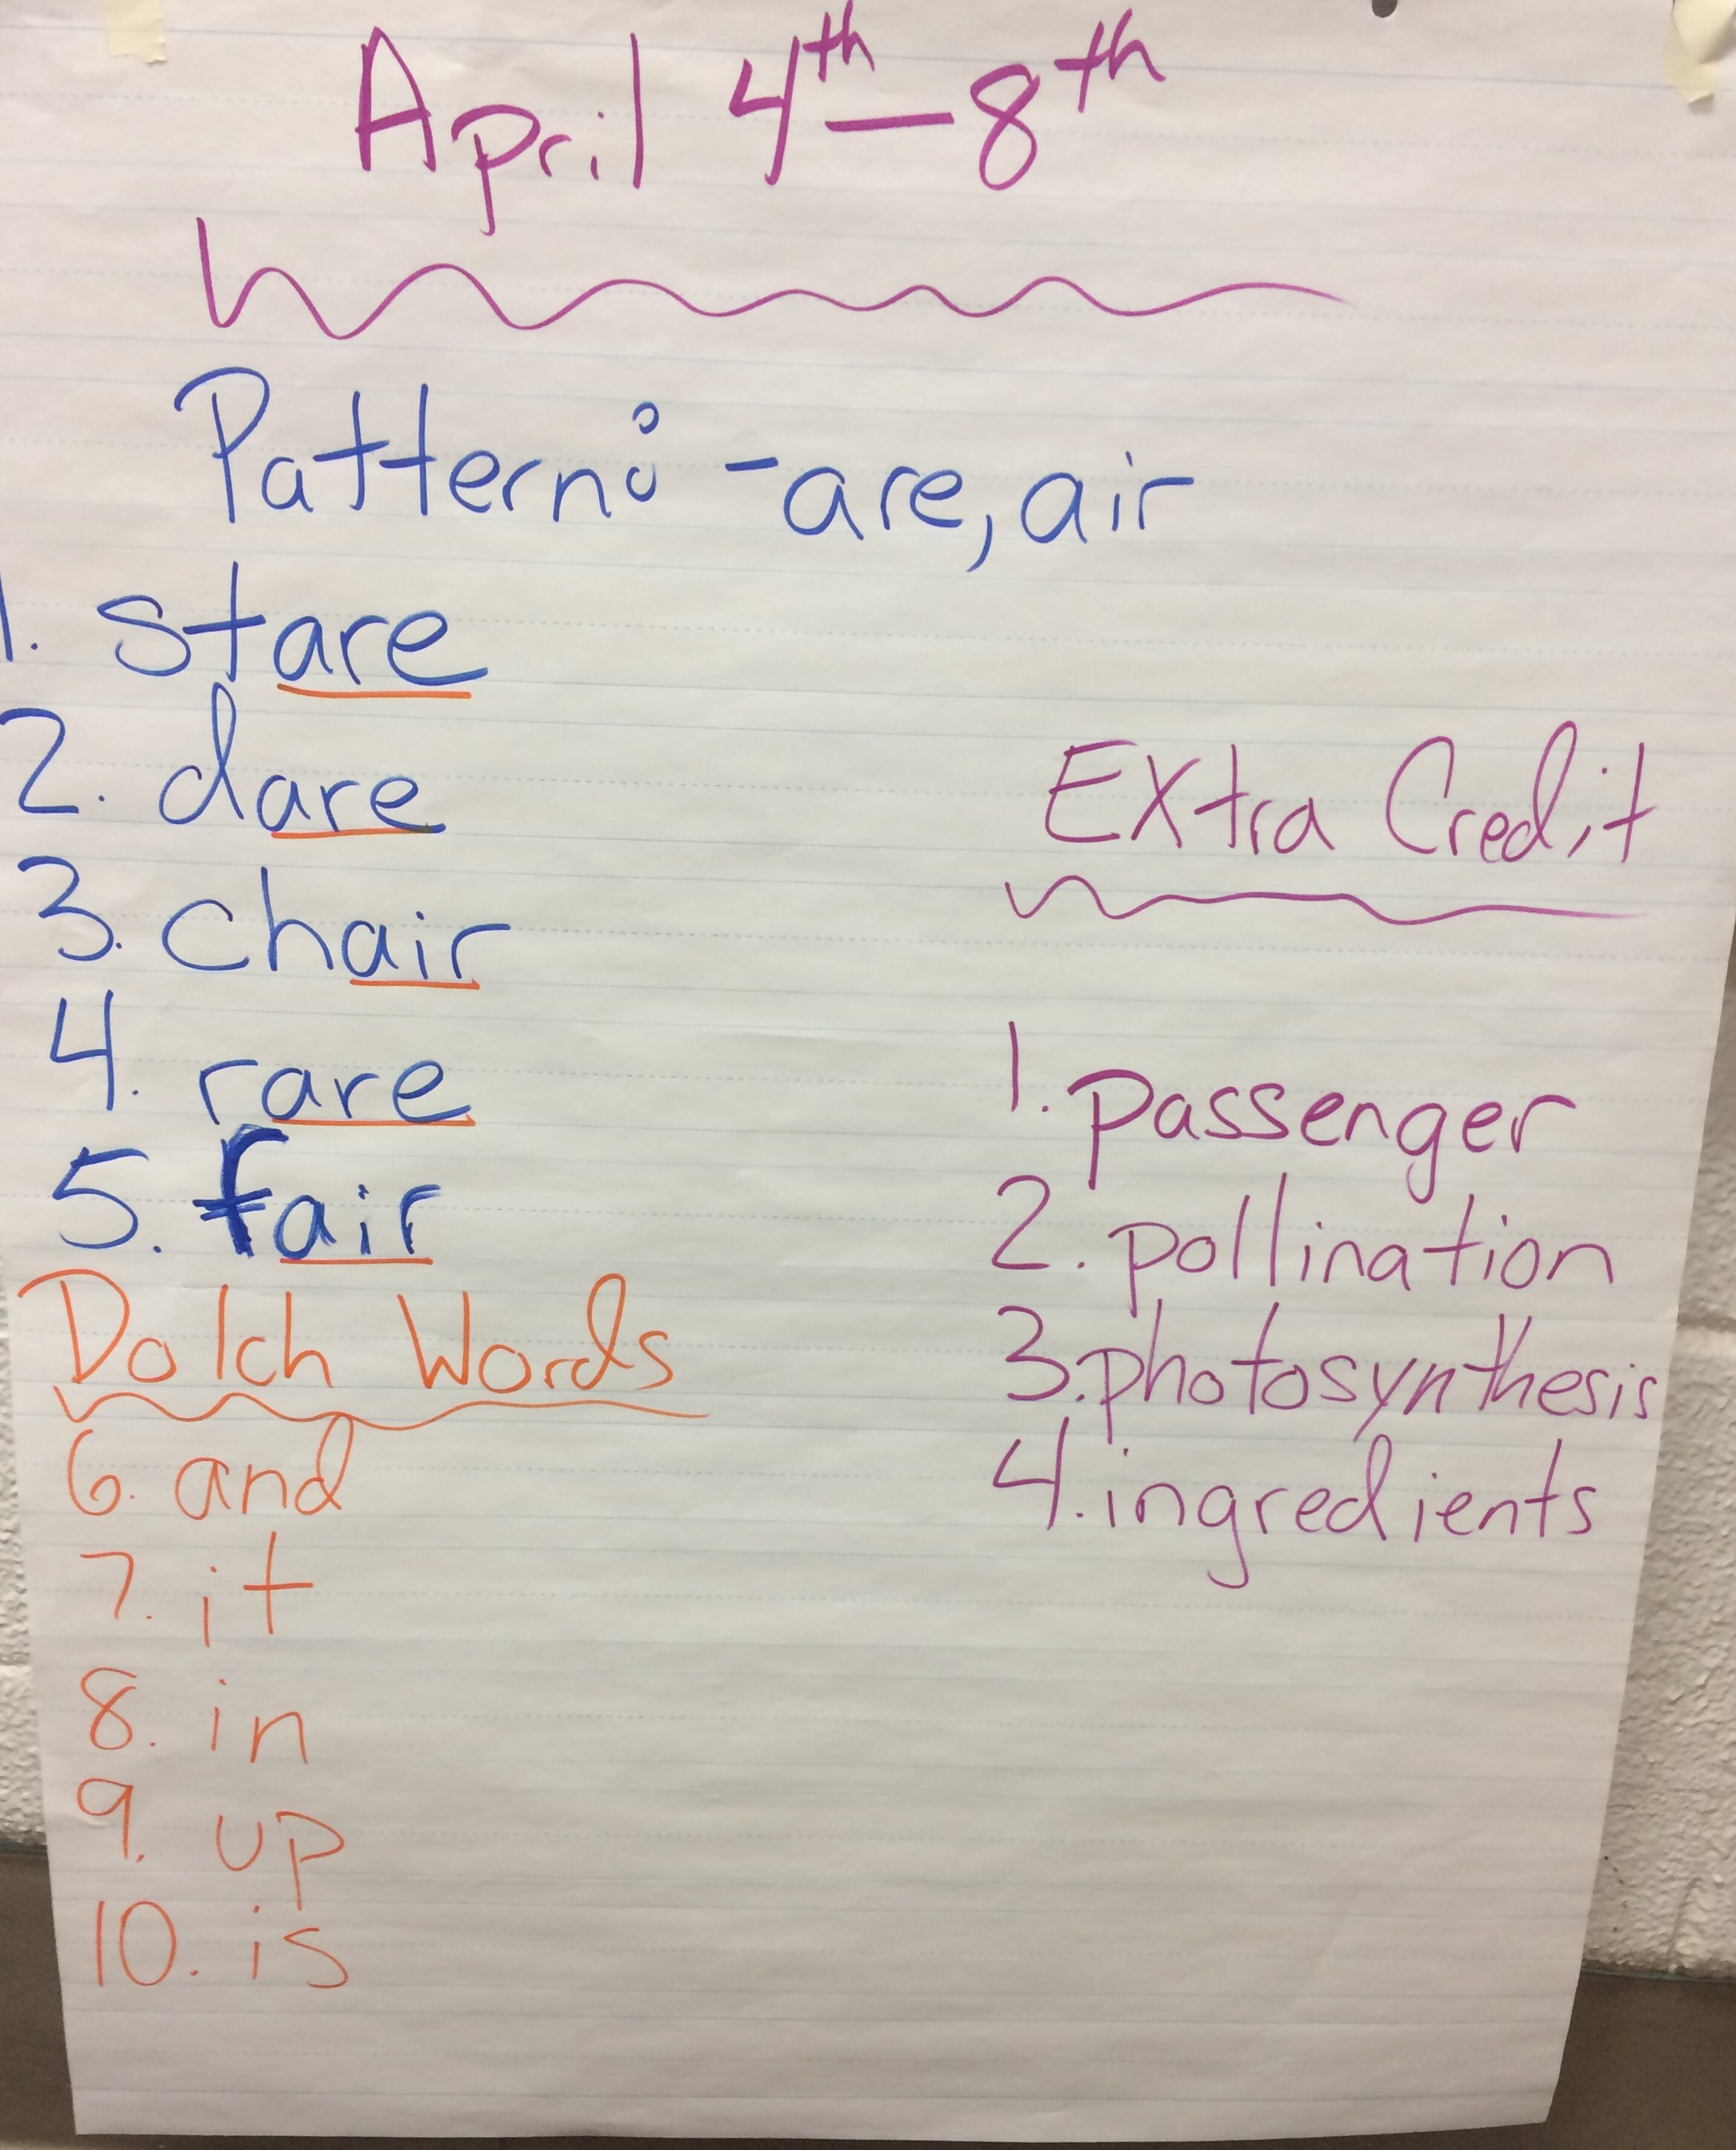 April 4th - 8th
Pattern: -are, air
1. stare
2. dare
3. chair
4. rare
5. fair
Dolch Words
6. and
7. it
8. in
9. up
10. is
EXtra Credit
1. passenger
2. pollination
3. photosynthesis
4. ingredients